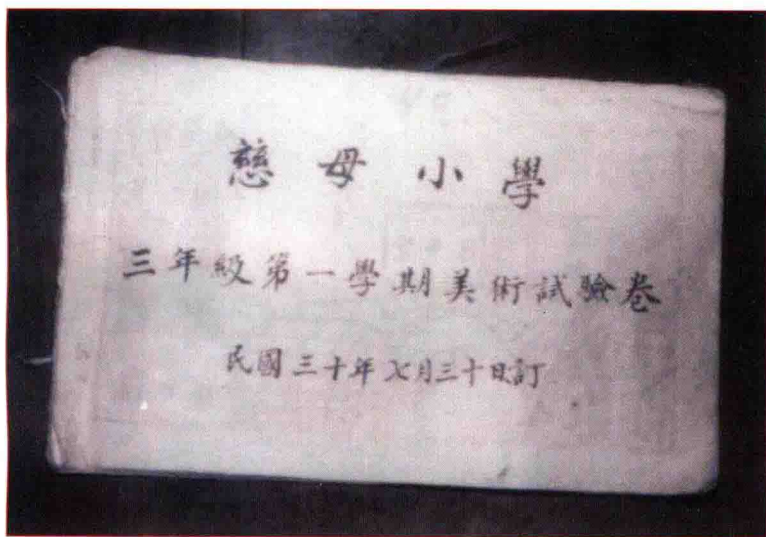 慈母小學
三年級第一學期美術試驗卷
民國三十年七月三十日訂